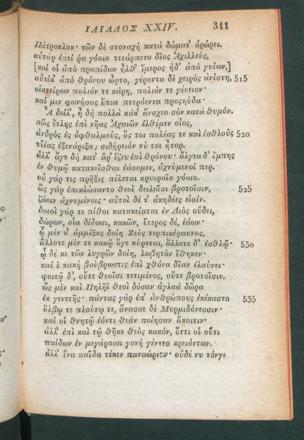 ΙΛΙΑΔΟΣ XXIV. 311
Πάτροκλον· τῶν δὲ στοναχὴ κατὰ δώματ' ὀρώρει.
αὐτὰρ ἐπεί ῥα γόοιο τετάρπετο δῖος Ἀχιλλεὺς,
[καί οἱ ἀπὸ πραπίδων ἦλθ' ἵμερος ἠδ' ἀπὸ γυίων,]
αὐτίκ' ἀπὸ θρόνου ὦρτο, γέροντα δὲ χειρὸς ἀνίστη, 515
οἰκτείρων πολιόν τε κάρη, πολιόν τε γένειον·
καί μιν φωνήσας ἔπεα πτερόεντα προσηύδα·
Ἆ δείλ', ἦ δὴ πολλὰ κάκ' ἄνσχεο σὸν κατὰ θυμόν.
πῶς ἔτλης ἐπὶ νῆας Ἀχαιῶν ἐλθέμεν οἶος,
ἀνδρὸς ἐς ὀφθαλμοὺς, ὅς τοι πολέας τε καὶ ἐσθλοὺς 520
υἱέας ἐξενάριξα; σιδήρειόν νύ τοι ἦτορ.
ἀλλ' ἄγε δὴ κατ' ἄρ' ἕζευ ἐπὶ θρόνου· ἄλγεα δ' ἔμπης
ἐν θυμῷ κατακεῖσθαι ἐάσομεν, ἀχνύμενοί περ.
οὐ γάρ τις πρῆξις πέλεται κρυεροῖο γόοιο.
ὣς γὰρ ἐπεκλώσαντο θεοὶ δειλοῖσι βροτοῖσιν, 525
ζώειν ἀχνυμένοις· αὐτοὶ δέ τ' ἀκηδέες εἰσίν.
δοιοὶ γάρ τε πίθοι κατακείαται ἐν Διὸς οὔδει,
δώρων, οἷα δίδωσι, κακῶν, ἕτερος δὲ, ἐάων·
ᾧ μέν κ' ἀμμίξας δοίη Ζεὺς τερπικέραυνος,
ἄλλοτε μέν τε κακῷ ὅγε κύρεται, ἄλλοτε δ' ἐσθλῷ· 530
ᾧ δέ κε τῶν λυγρῶν δοίη, λωβητὸν ἔθηκεν·
καί ἑ κακὴ βούβρωστις ἐπὶ χθόνα δῖαν ἐλαύνει·
φοιτᾷ δ', οὔτε θεοῖσι τετιμένος, οὔτε βροτοῖσιν.
ὣς μὲν καὶ Πηλῆϊ θεοὶ δόσαν ἀγλαὰ δῶρα
ἐκ γενετῆς· πάντας γὰρ ἐπ' ἀνθρώπους ἐκέκαστο 535
ὄλβῳ τε πλούτῳ τε, ἄνασσε δὲ Μυρμιδόνεσσιν·
καί οἱ θνητῷ ἐόντι θεὰν ποίησαν ἄκοιτιν·
ἀλλ' ἐπὶ καὶ τῷ θῆκε θεὸς κακὸν, ὅττι οἱ οὔτι
παίδων ἐν μεγάροισι γονὴ γένετο κρειόντων.
ἀλλ' ἕνα παῖδα τέκεν παναώριον· οὐδέ νυ τόνγε